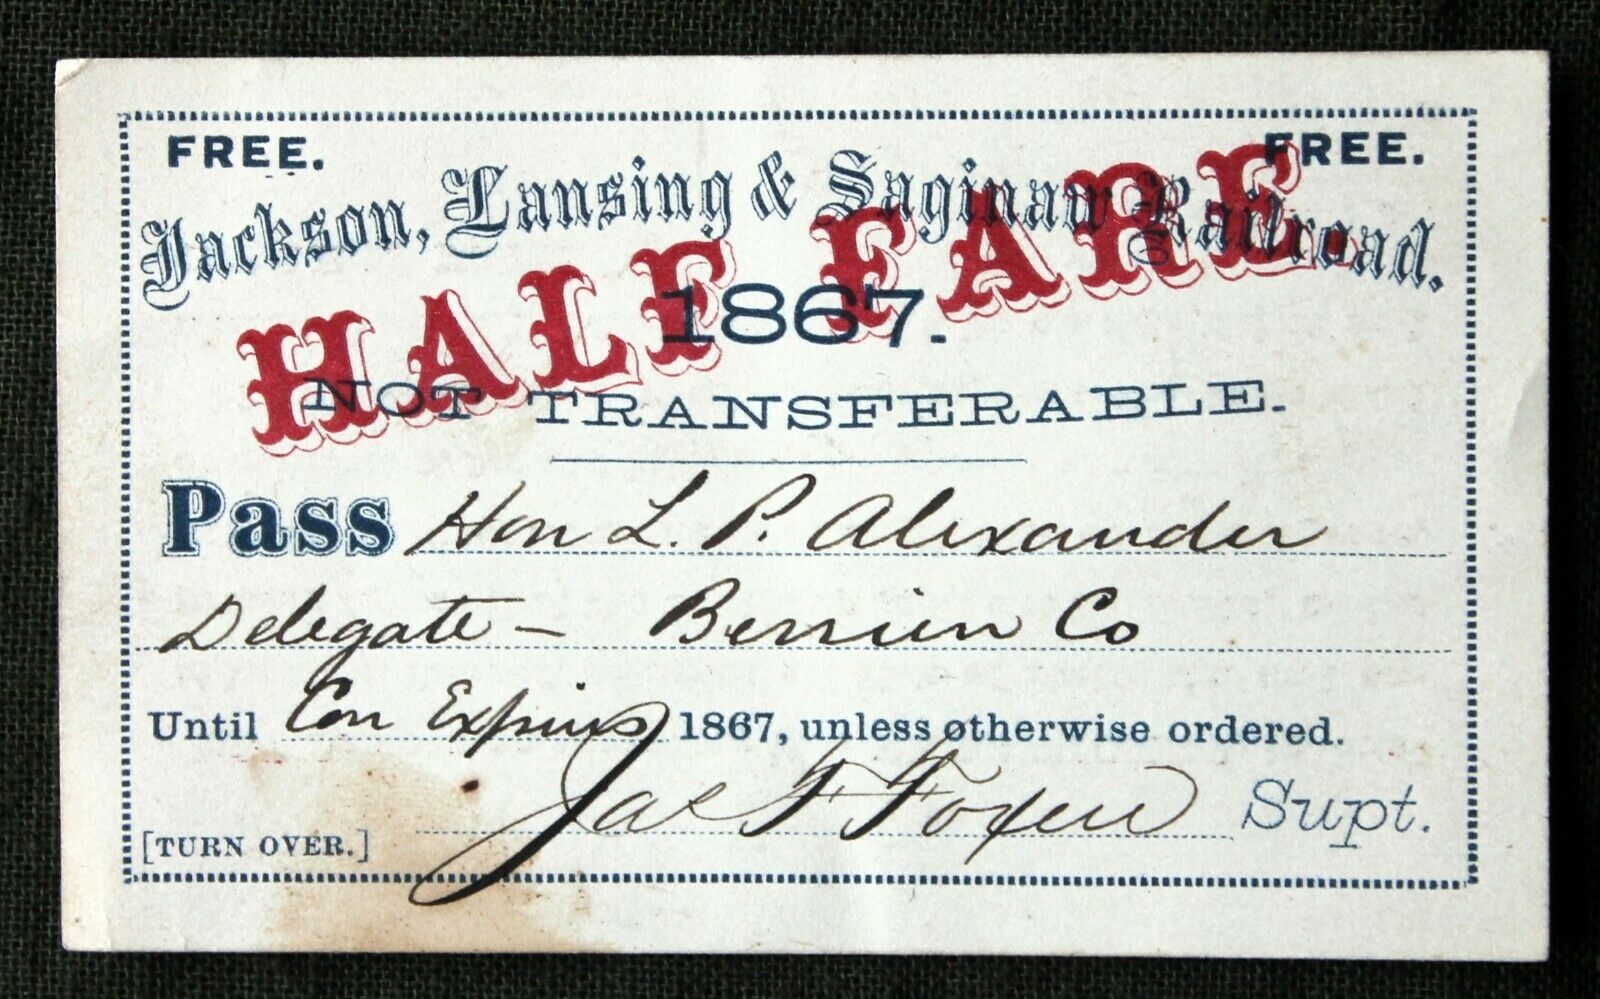 FREE. FREE.
Jackson, Lansing & Saginaw Railroad.
HALF FARE.
1867.
NOT TRANSFERABLE.
Pass Hon L. P. Alexander
Delegate - Berrien Co
Until Con Expires 1867, unless otherwise ordered.
Jas Supt.
[TURN OVER.]